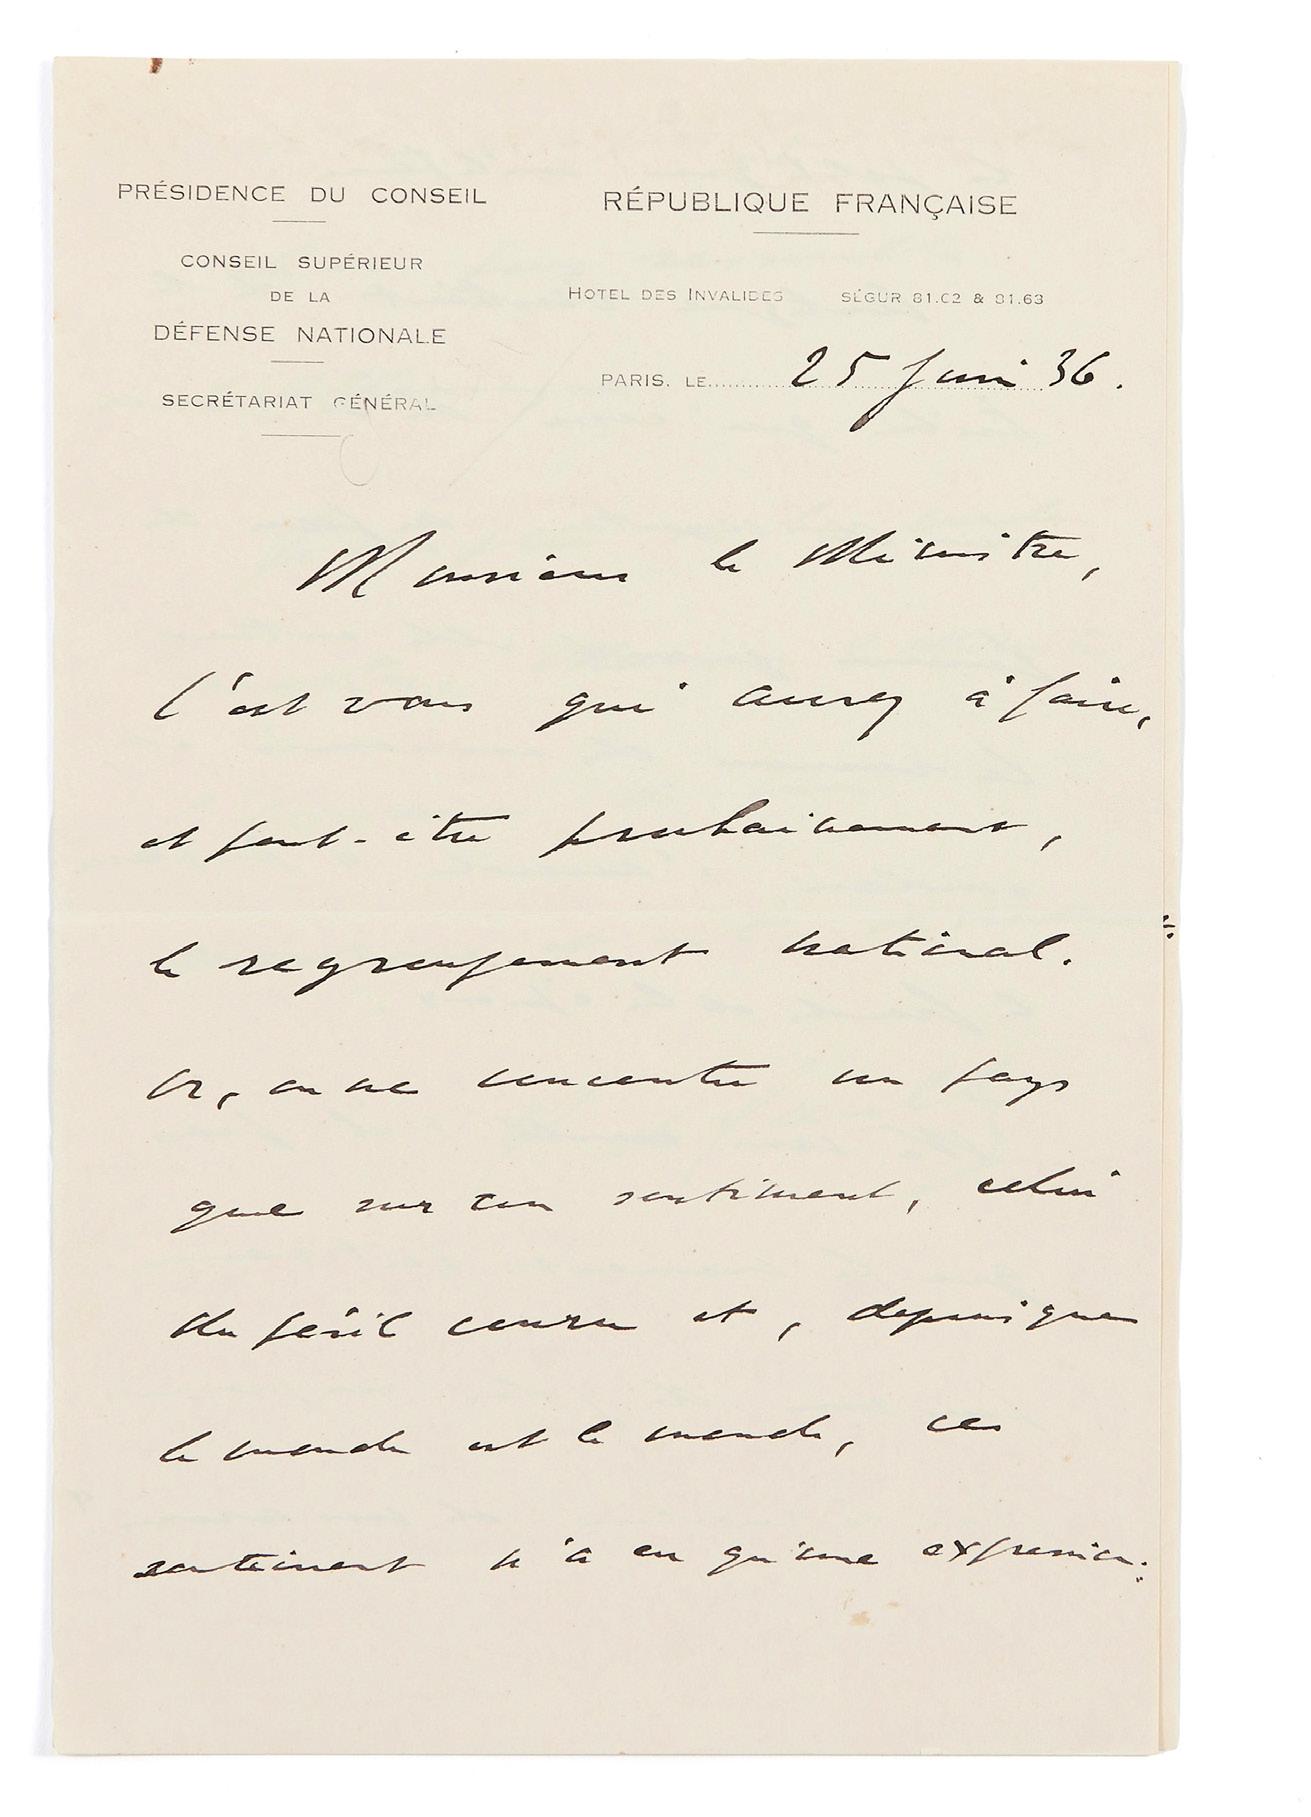 PRÉSIDENCE DU CONSEIL
CONSEIL SUPÉRIEUR
DE LA
DÉFENSE NATIONALE
SECRÉTARIAT GÉNÉRAL
RÉPUBLIQUE FRANÇAISE
HOTEL DES INVALIDES SÉGUR 81.62 & 81.63
PARIS, LE 25 Juin 36.
Monsieur le Ministre,
C'est vous qui aurez à faire,
et peut-être prochainement,
le regroupement national.
Or, on ne concentre un pays
que sur un sentiment, celui
du péril couru et, depuis que
le monde est le monde, ce
sentiment n'a eu qu'une expression :